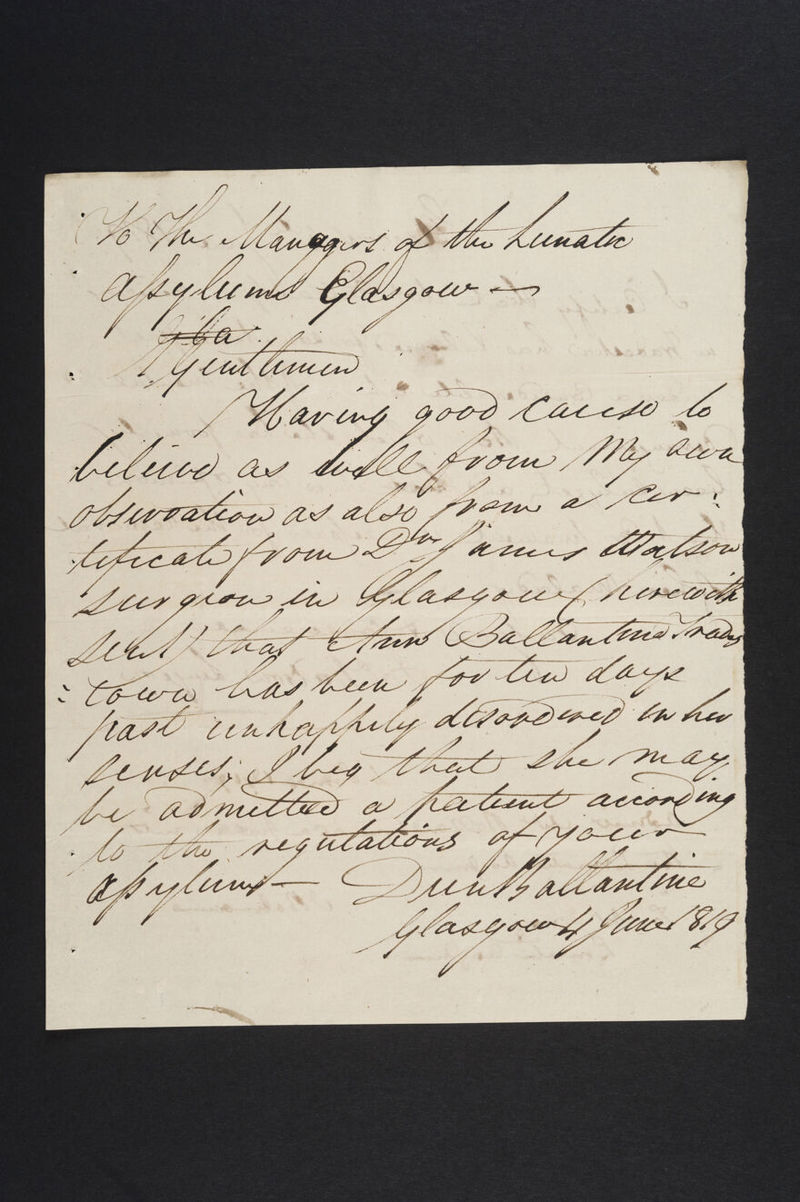 To The Managers of the Lunatic
Assylums Glasgow —
Gentlemen
Having good cause to
believe as well from My own
observation as also from a cer:
:tificate from Dr James Watson
surgeon in Glasgow (herewith
sent) that Ann Ballantine Trades
:town has been for ten days
past unhappily disordered in her
senses; I beg that she may
be admitted a patient according
to the regutations of your
assylum — Dun Ballantine
Glasgow 4 June 1819